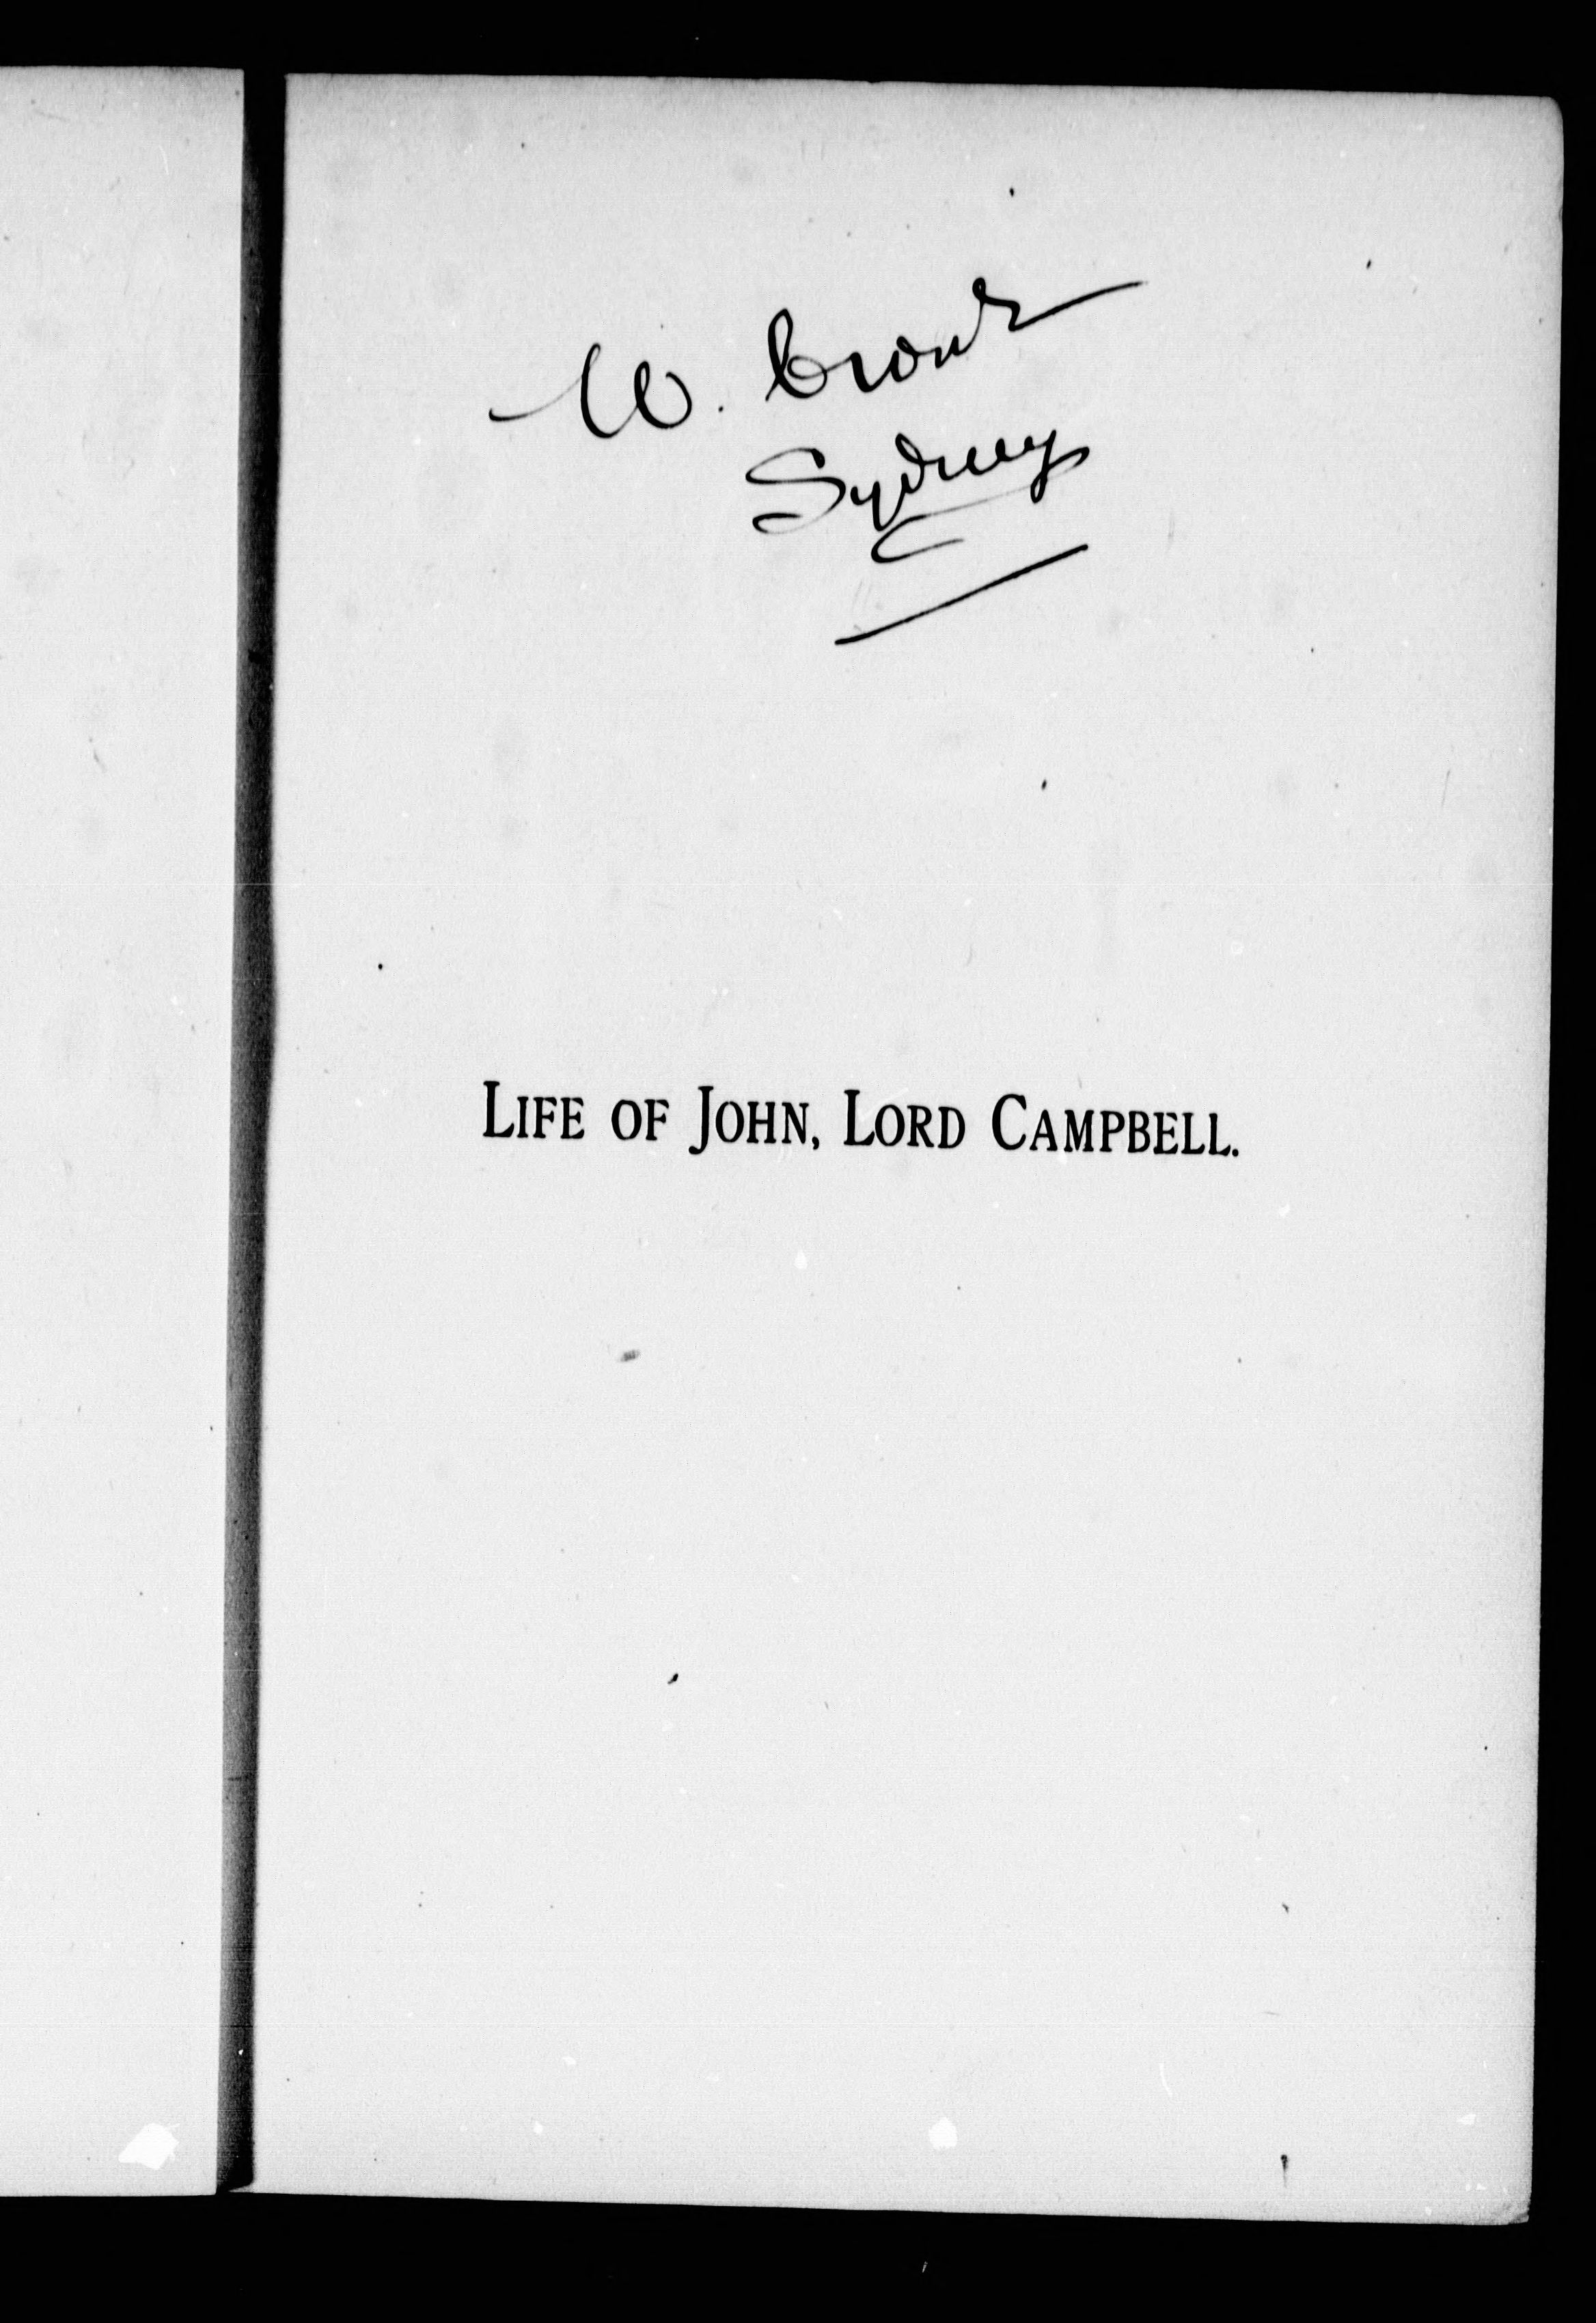 W.
Sydney
LIFE OF JOHN, LORD CAMPBELL.